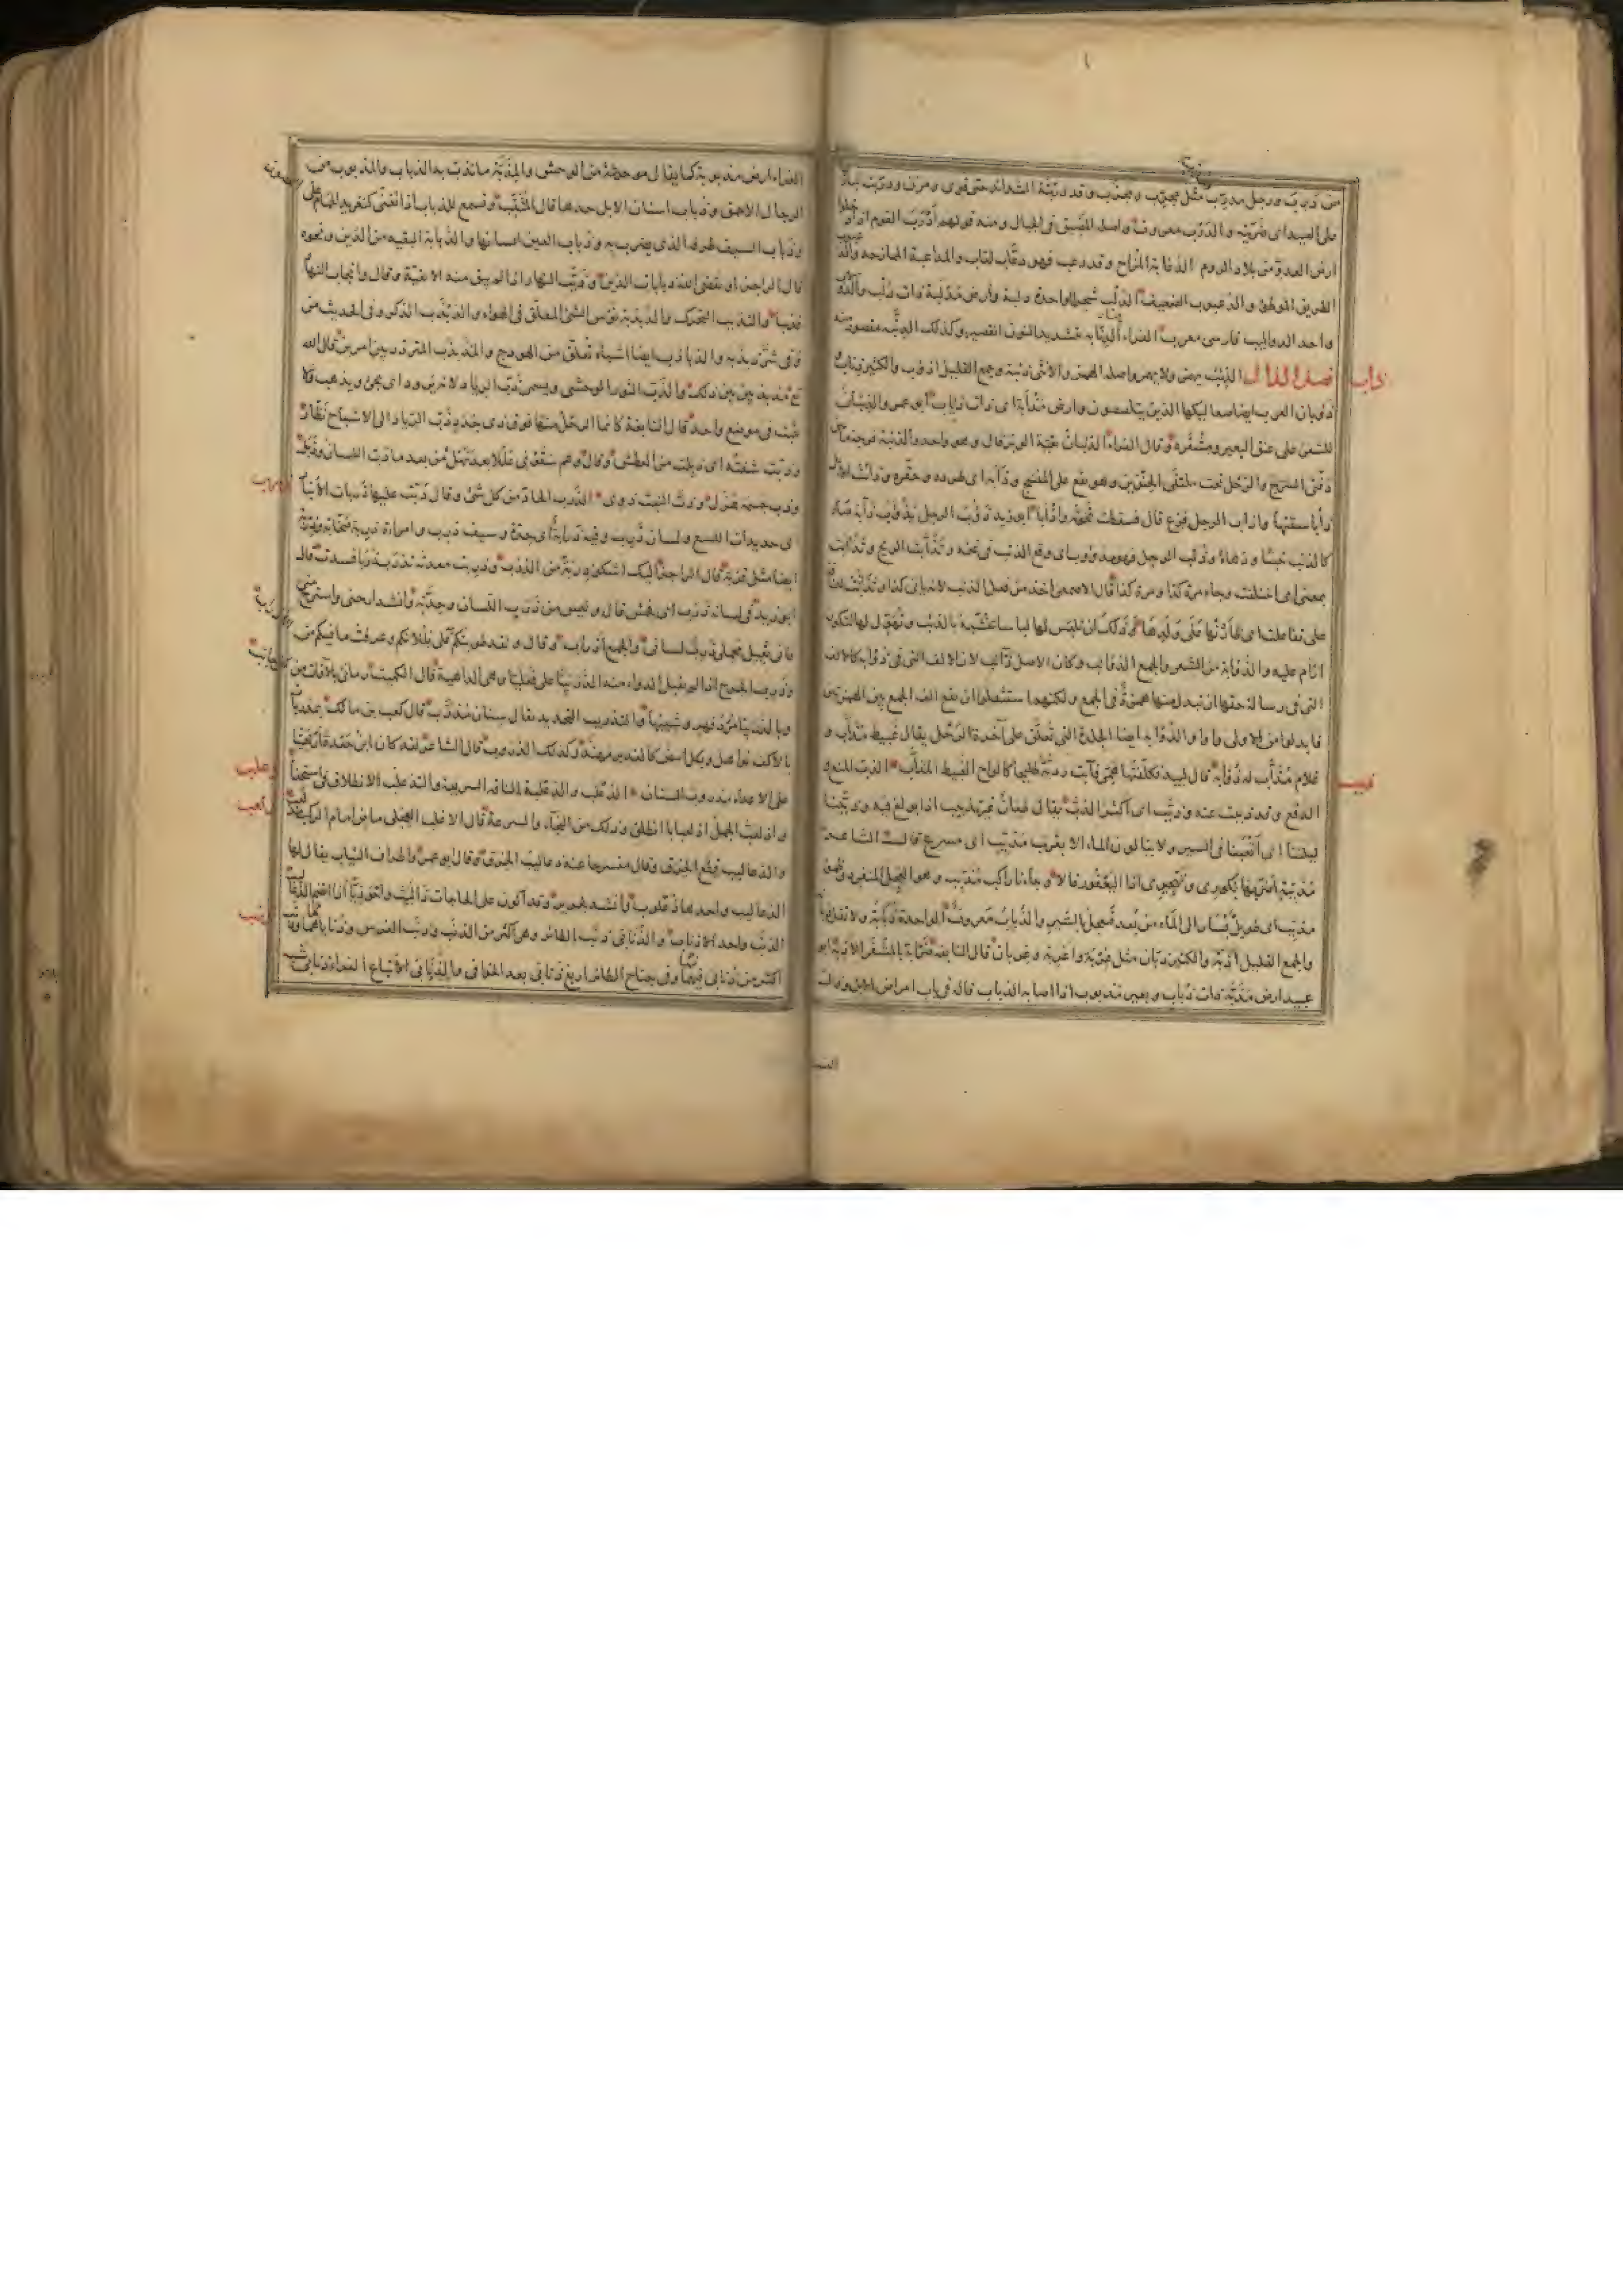 من دَرِبَ ورجل مدرّب مثل مجرّب ومجرَّب وقد درّبته الشدائد حتى قوى ومرن ودرّبت
على الصيد اى ضَرّيته والدَرب معروف واصله المَضيق فى الجبال ومنه قولهم ادرب القوم اذا دخلوا
ارض العدو من بلاد الروم الدعابة المُزاح وقد دعب فهو دعّاب لعّاب والمداعبة الممازحة
الطريق المُوطّئ والدعبوب الضعيف الدُلب شجر الواحدة دلبة وارض مَدْلَبة ذات دُلب
واحد الدواليب فارسى معرب الفراء الدِنّابه بتشديد النون القصير وكذلك الدِنَّبه مقصور منه
ذاب
فصل الذال الذئب يهمز ولا يهمز واصله الهمز والانثى ذئبة وجمع القليل اذؤب والكثير ذئاب
ذؤبان العرب ايضا صعاليكها الذين يتلصصون وارض مَذْأبة اى ذات ذئاب ابو عمرو الذئبان
الشعر على عنق البعير ومِشفره وقال الفراء الذئبان بقيّة الوبر قال وهو واحد والذئبة فرجة ما بين
دفّتى السَرج والرحل تحت ملتقى الحِنْوَين وهو يقع على المِنسج وذأبه اى طرده وحقّره وذأبت الابل
ذأبا سقتها واذأب الرجل فزع قال فسقطت نَخْوتُه واذأبا ابو زيد ذَؤُب الرجل يَذْؤُب ذآبة صار
كالذئب خبثا ودهاءً وذُئب الرجل فهو مذؤوب اى وقع الذئب فى غنمه وتَذَأّبت الريح وتذاأبت
بمعنى اى اختلفت وجاءت مرة كذا ومرة كذا قال الاصمعى اخذ من فعل الذئب لانه ياتى كذا وتذأّبت للناقة
على تفاعلت اى ظأرتُها على ولدها وذلك ان تلبس لها لباسا تتشبّه بالذئب وتُهَوِّل لها لتكون
ارأم عليه والذؤابة من الشعر والجمع الذوائب وكان الاصل ذآئب لان الالف التى فى ذؤابه كالالف
التى فى رسالة حقها ان تبدل منها همزة فى الجمع ولكنهم استثقلوا ان يقع الف الجمع بين الهمزتين
فابدلوا من الاولى واوا والذؤابه ايضا الجلدة التى تُعلّق على آخرة الرحل يقال غبيط مُذَأَّب و
ذبب
غلام مُذَأّب له ذؤابة قال لبيد فكلّفتُها همّى فآبت رذيّةً طليحًا كالواح الغبيط المذأّب الذب المنع و
الدفع وقد ذببت عنه وذبّب اى اكثر الذبّ يقال طعان غير تذبيب اذا بولغ فيه وذبّبنا
ليلتنا اى اتعبنا فى السير ولا ينالون الماء الا بقَرَب مُذبِّب اى مسرع قالت الشاعرة
مُذبِّبة اضرّ بها بكورى وتهجيرى اذا اليعفور قالا وجاءنا راكب مُذبِّب وهو العَجِل المنفرد وظمؤ
مذبّب اى طويل يُسار الى الماء من بُعد فيُعجل السير والذُباب معروف الواحدة ذُبابة ولا تقل ذبانة
والجمع القليل اَذِبّة والكثير ذِبّان مثل غراب واغربة وغربان قال النابغة ضرّابة بالمشفر الاذبّه ابو
عبيد ارض مَذَبّة ذات ذُباب وبعير مَذبوب اذا اصابه الذباب قاله فى باب امراض الابل وذات
الفراء ارض مذبوبة كما يقال موحوشة من الوحش والمِذَبّة ما تذب به الذباب والمذبوب من
الرجال الاحمق وذباب اسنان الابل حدها قال المثقّب وتسمع للذباب اذا تغنّى كتغريد الحمام على
وذباب السيف طرفه الذى يضرب به وذباب العين انسانها والذبابة البقيه من الدين ونحوه
قال الراجز او يقضى الله ذبابات الدين وذبَّب النهار اذا لم يبق منه الا بقية وقال وانجاب النهار
فذبّبا والتذبذب التحرك والذبذبة نَوْس الشئ المعلّق فى الهواء والذَبذَب الذكر وفى الحديث من
وقى شرّ ذبذبه والذباذب ايضا اشياء تُعلَّق من الهودج والمذبذب المتردد بين امرين قال الله
تع مذبذبين بين ذلك والذَبّ الثور الوحشى ويسمى ذبّ الرياد لانه يرود اى يجئ ويذهب فلا
يثبت فى موضع واحد قال النابغة كانما الرحل منها فوق ذى جُدَد ذبّ الرياد الى الاشباح نَظّار
وذبّت شفته اى ذبلت من العطش وقال وهم سقَوْنى عَلَلا بعد نَهَل من بعد ما ذبّ اللسان وذبل
ذرب
وذبّ جسمه هُزل وذبّ النبت ذوى الذَرِب الحادّ من كل شئ وقال دبّت عليها ذربات الانبار
اى حديدات اللسع ولسان ذَرِب وفيه ذَرابة اى حِدّة وسيف ذرب وامراة ذَرِبة صخّابة وذِرْبة
ايضا مثل قِرْبة قال الراجز اليك اشكو ذِرْبة من الذرب وذَرِبت معدته تذرَب ذرَبا فسدت قال
ابو زيد فى لسانه ذرب اى فحش قال وليس من ذَرَب اللسان وحِدّته وانشد ارحنى واستَرِح منّى
فانى ثقيل محملى ذَرِب لسانى والجمع اذراب وقال ولقد طويتكم على بُلُلاتكم وعرفت ما فيكم من الاذراب
وذرب الجرح اذا لم يقبل الدواء ومنه الذَرَبَيّا على فَعَلَيّا وهى الداهية قال الكميت رمانى بالآفات من كل جانب
وبالذَرَبَيّا مُرْدُ فهر وشيبُها والتذريب التحديد يقال سِنان مُذرَّب قال كعب بن مالك بمذرّبات
بالاكف نواهل وبكل ابيض كالغدير مهنّد وكذلك المذروب قال الشاعر لقد كان ابن جعدة اَرْيَحيّا
ذعلب
على الاعداء مذروب السنان الذعلب والذعلبة الناقة السريعة والتذعلب الانطلاق فى استخفاء
واذلعبّ الجمل اذلعبابا انطلق وذلك من النجاء والسرعة قال الاغلب العجلى ماض امام الركب
والذعاليب قِطَع الخِرَق وقال منسرحا عنه ذعاليب الخِرَق وقال ابو عمرو اطراف الثياب يقال لها
الذعاليب واحدها ذُعلوب وانشد لجرير وقد اكون على الحاجات ذا لَبَث واحوذيّا اذا انضمّ الذعاليب
ذنب
الذنَب واحد الاذناب والذُنابى ذنب الطائر وهى اكثر من الذنب وذنب الفرس وذُناباهما وذنب
اكثر من ذنابى فيهما وفى جناح الطائر اربع ذُنابى بعد الخوافى والذُنابى الاتباع الفراء ذنابى